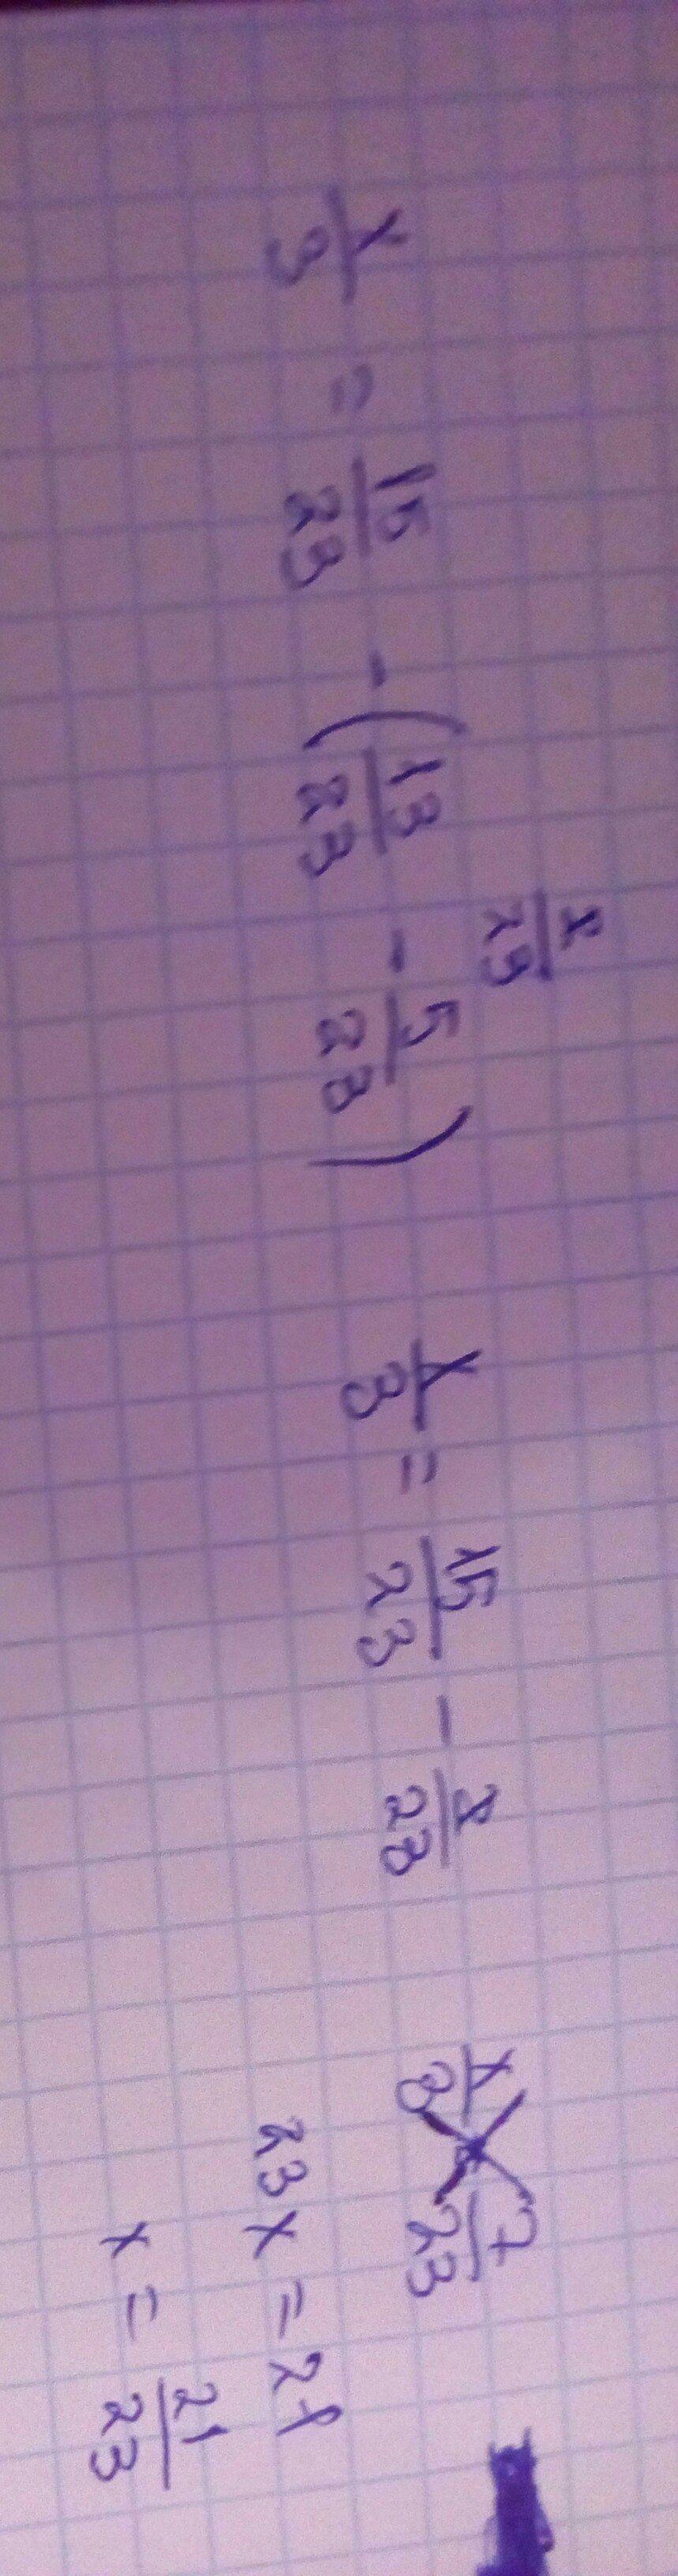 8/23
x/3 = 15/23 - (13/23 - 5/23)    x/3 = 15/23 - 8/23    x/3 7/23
23x = 21
x = 21/23